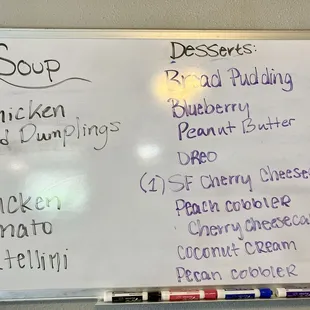 Soup
hicken
d Dumplings
icken
mato
tellini
Desserts:
Bread Pudding
Blueberry
Peanut Butter
OREO
(1) SF Cherry Cheesec
Peach cobbler
Cherry Cheeseca
Coconut Cream
Pecan cobbler